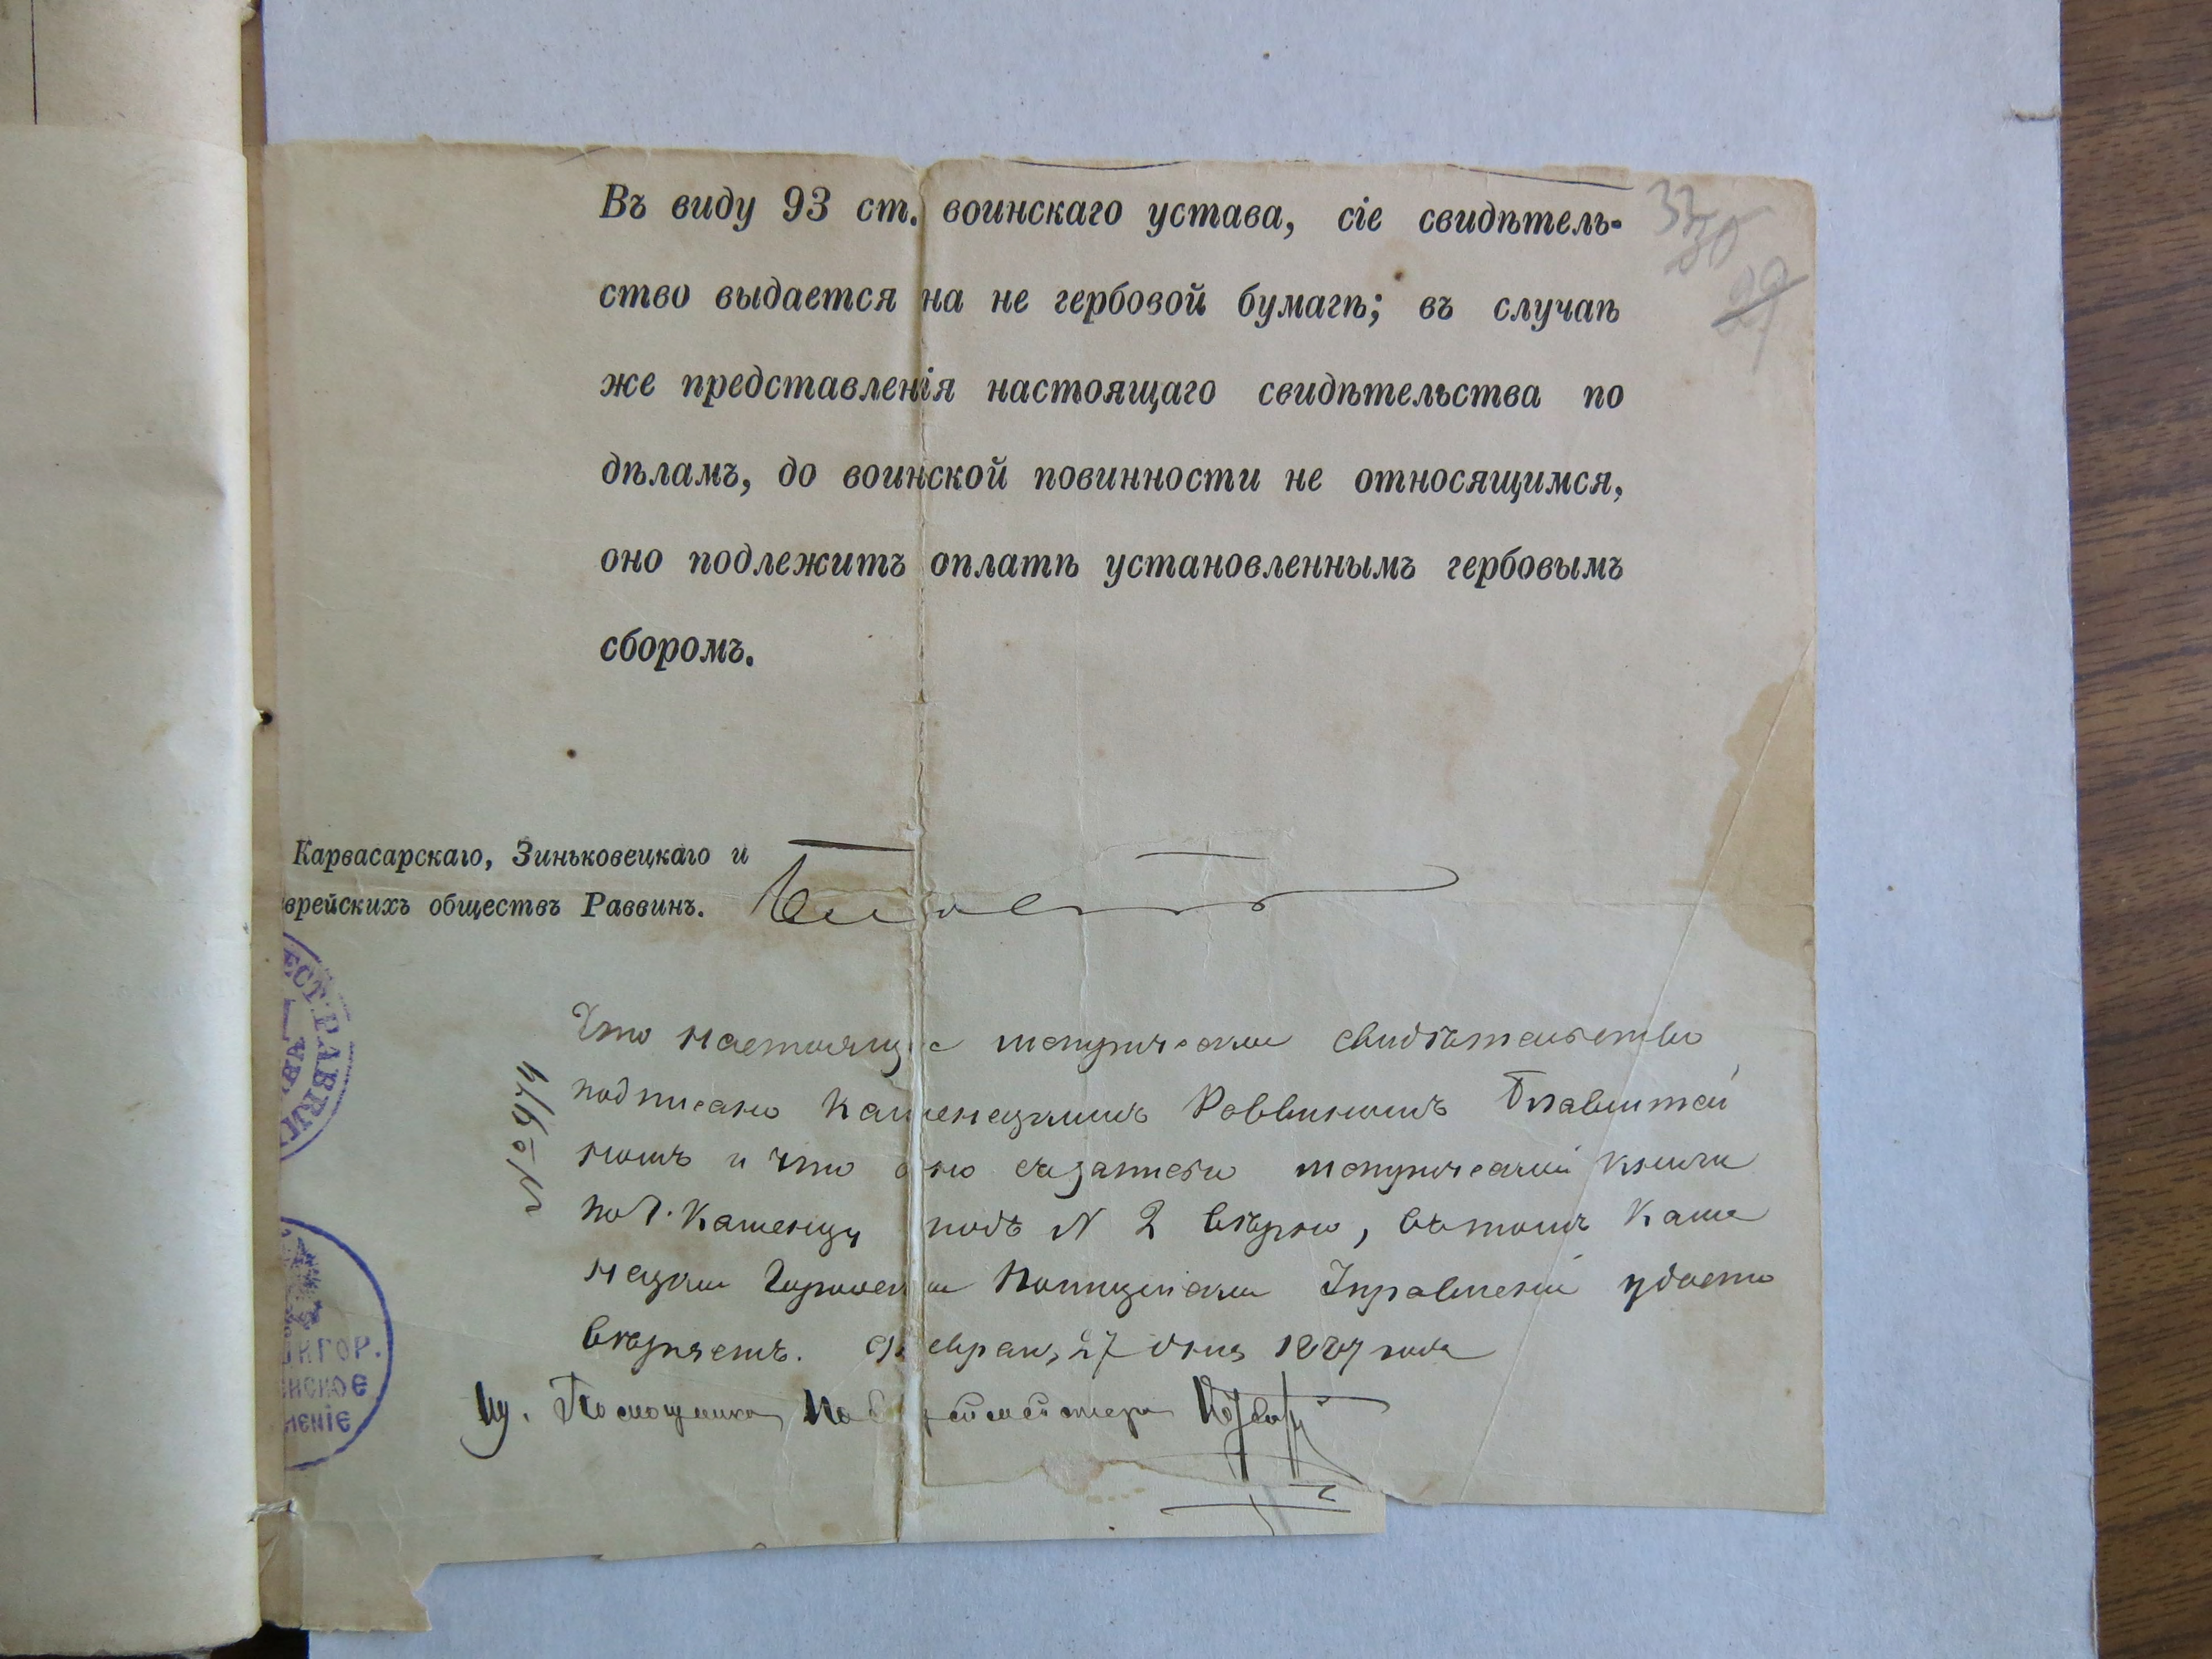 Въ виду 93 ст. воинскаго устава, сіе свидѣтель-
ство выдается на не гербовой бумагѣ; въ случаѣ
же представленія настоящаго свидѣтельства по
дѣламъ, до воинской повинности не относящимся,
оно подлежитъ оплатѣ установленнымъ гербовымъ
сборомъ.
33
30
29
Карвасарскаго, Зиньковецкаго и
врейскихъ обществъ Раввинъ.
ЕСТ. РАВВИ
Что настоящее метрическое свидѣтельство
подписано Каменецкимъ Раввиномъ Блавштей
номъ и что оно съ записью метрической книги
по г. Каменцу подъ N 2 вѣрно, въ томъ Каме
нецкое Городское Полицейское Управленіе удосто
вѣряетъ. Февраля 27 дня 1887 года
№ 974
И д. Помощника Полицеймейстера
ГОР.
НСКОЕ
ЛЕНІЕ